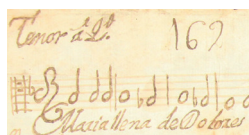 Tenor a 2º 169
Maria llena de Dolores